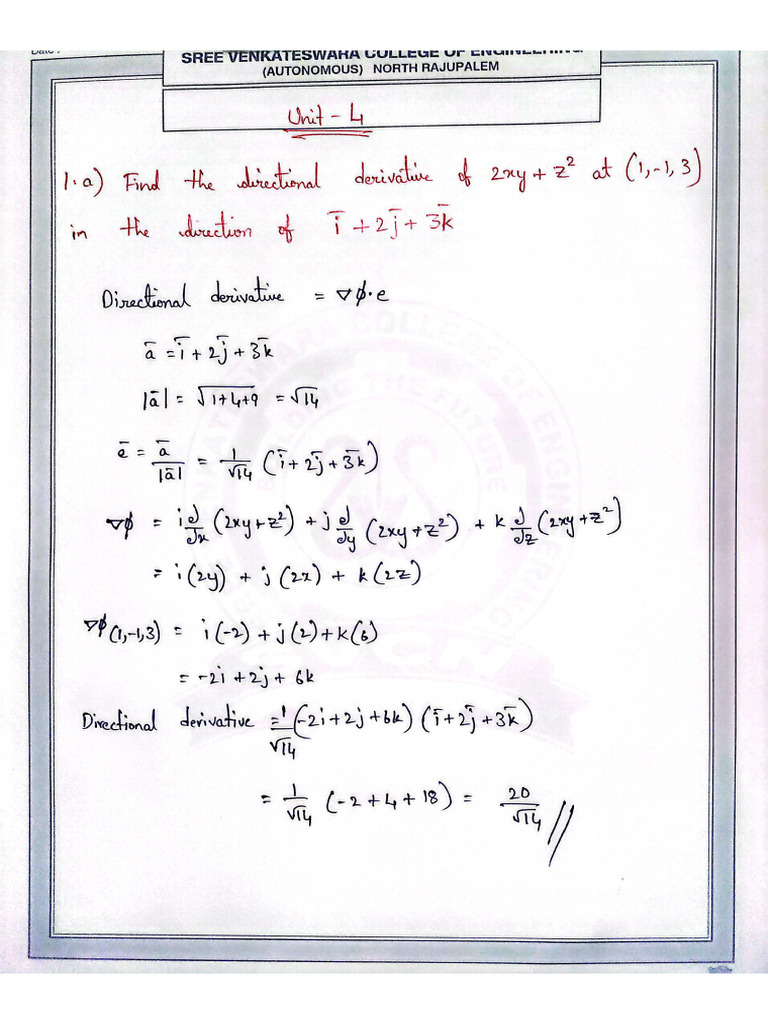 Date :
SREE VENKATESWARA COLLEGE OF ENGINEERING
(AUTONOMOUS) NORTH RAJUPALEM
Unit - 4
1.a) Find the directional derivative of 2xy + z² at (1,-1,3)
in the direction of i̅ + 2j̅ + 3k̅
Directional derivative = ∇ϕ·e
a̅ = i̅ + 2j̅ + 3k̅
|a̅| = √1+4+9 = √14
e̅ = a̅/|a̅| = 1/√14 (i̅ + 2j̅ + 3k̅)
∇ϕ = i ∂/∂x (2xy+z²) + j ∂/∂y (2xy+z²) + k ∂/∂z (2xy+z²)
= i(2y) + j(2x) + k(2z)
∇ϕ(1,-1,3) = i(-2) + j(2) + k(6)
= -2i + 2j + 6k
Directional derivative = 1/√14 (-2i + 2j + 6k) (i̅ + 2j̅ + 3k̅)
= 1/√14 (-2 + 4 + 18) = 20/√14 //